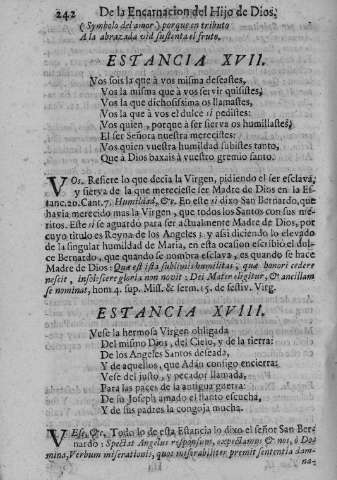 242 De la Encarnacion del Hijo de Dios,
(Symbolo del amor) porque en tributo
A la abrazada vid sustenta el fruto.
ESTANCIA XVII.
Vos sois la que à vos misma deseastes,
Vos la misma que à vos servir quisistes,
Vos la que dichosissima os llamastes,
Vos la que à vos el dulce si pedistes:
Vos quien, porque à ser sierva os humillastes,
El ser Señora nuestra merecistes:
Vos quien vuestra humildad subistes tanto,
Que à Dios baxais à vuestro gremio santo.
VOs. Refiere lo que decia la Virgen, pidiendo el ser esclava,
y sierva de la que mereciesse ser Madre de Dios en la Es-
tanc.20.Cant.7. Humildad, &c. En este si dixo San Bernardo, que
havia merecido mas la Virgen, que todos los Santos con sus me-
ritos. Este si se aguardò para ser actualmente Madre de Dios, por
cuyo titulo es Reyna de los Angeles: y assi diciendo lo elevado
de la singular humildad de Maria, en esta ocasion escribiò el dul-
ce Bernardo, que quando se nombra esclava, es quando se hace
Madre de Dios: Quæ est ista sublimis humilitas, quæ honori cedere
nescit, insolescere gloria non novit: Dei Mater eligitur, & ancillam
se nominat, hom. 4. sup. Miss. & serm. 15. de festiv. Virg.
ESTANCIA XVIII.
Vese la hermosa Virgen obligada
Del mismo Dios, del Cielo, y de la tierra:
De los Angeles Santos deseada,
Y de aquellos, que Adán contigo encierra:
Vese del justo, y pecador llamada,
Para las paces de la antigua guerra:
De su Joseph amado el llanto escucha,
Y de sus padres la congoja mucha.
VEse, &c. Todo lo de esta Estancia lo dixo el señor San Ber-
nardo: Spectat Angelus responsum, expectamus & nos, ò Do-
mina, Verbum miserationis, quos miserabiliter premit sententia dam-
na-